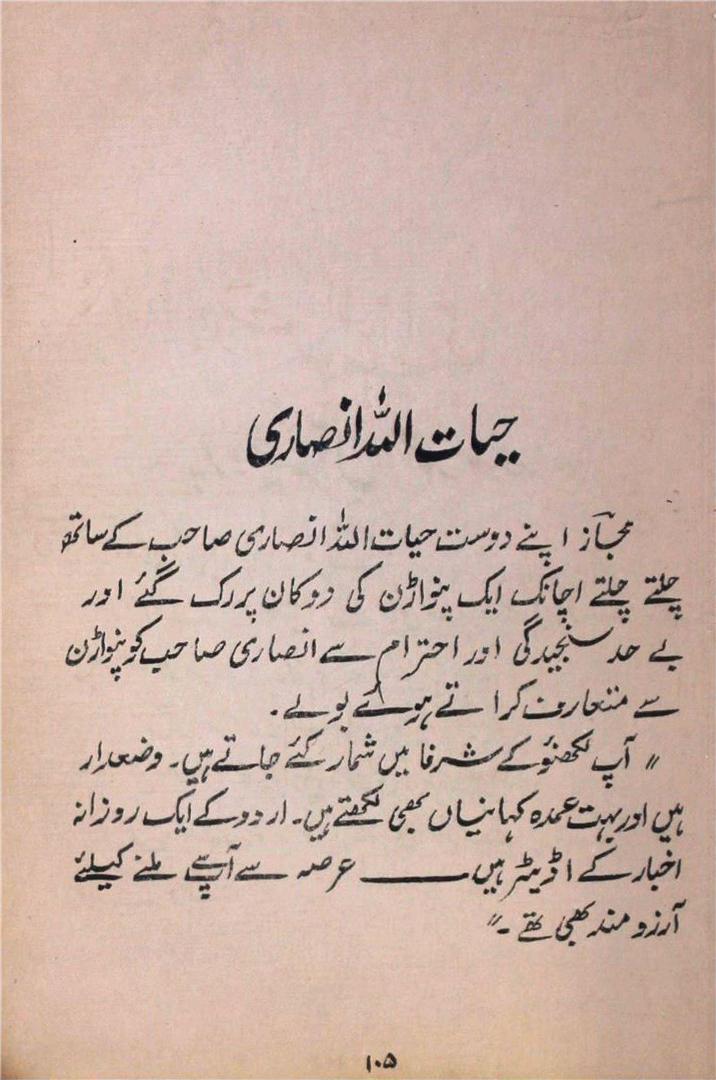 حیات اللہ انصاری
مجاز اپنے دوست حیات اللہ انصاری صاحب کے ساتھ
چلتے چلتے اچانک ایک پنواڑن کی دوکان پر رک گئے اور
بے حد سنجیدگی اور احترام سے انصاری صاحب کو پنواڑن
سے متعارف کراتے ہوئے بولے۔
" آپ لکھنؤ کے شرفا میں شمار کئے جاتے ہیں۔ وضعدار
ہیں اور بہت عمدہ کہانیاں بھی لکھتے ہیں۔ اردو کے ایک روزانہ
اخبار کے اڈیٹر ہیں ——— عرصہ سے آپ سے ملنے کیلئے
آرزو مند بھی تھے ۔"
۱۰۵